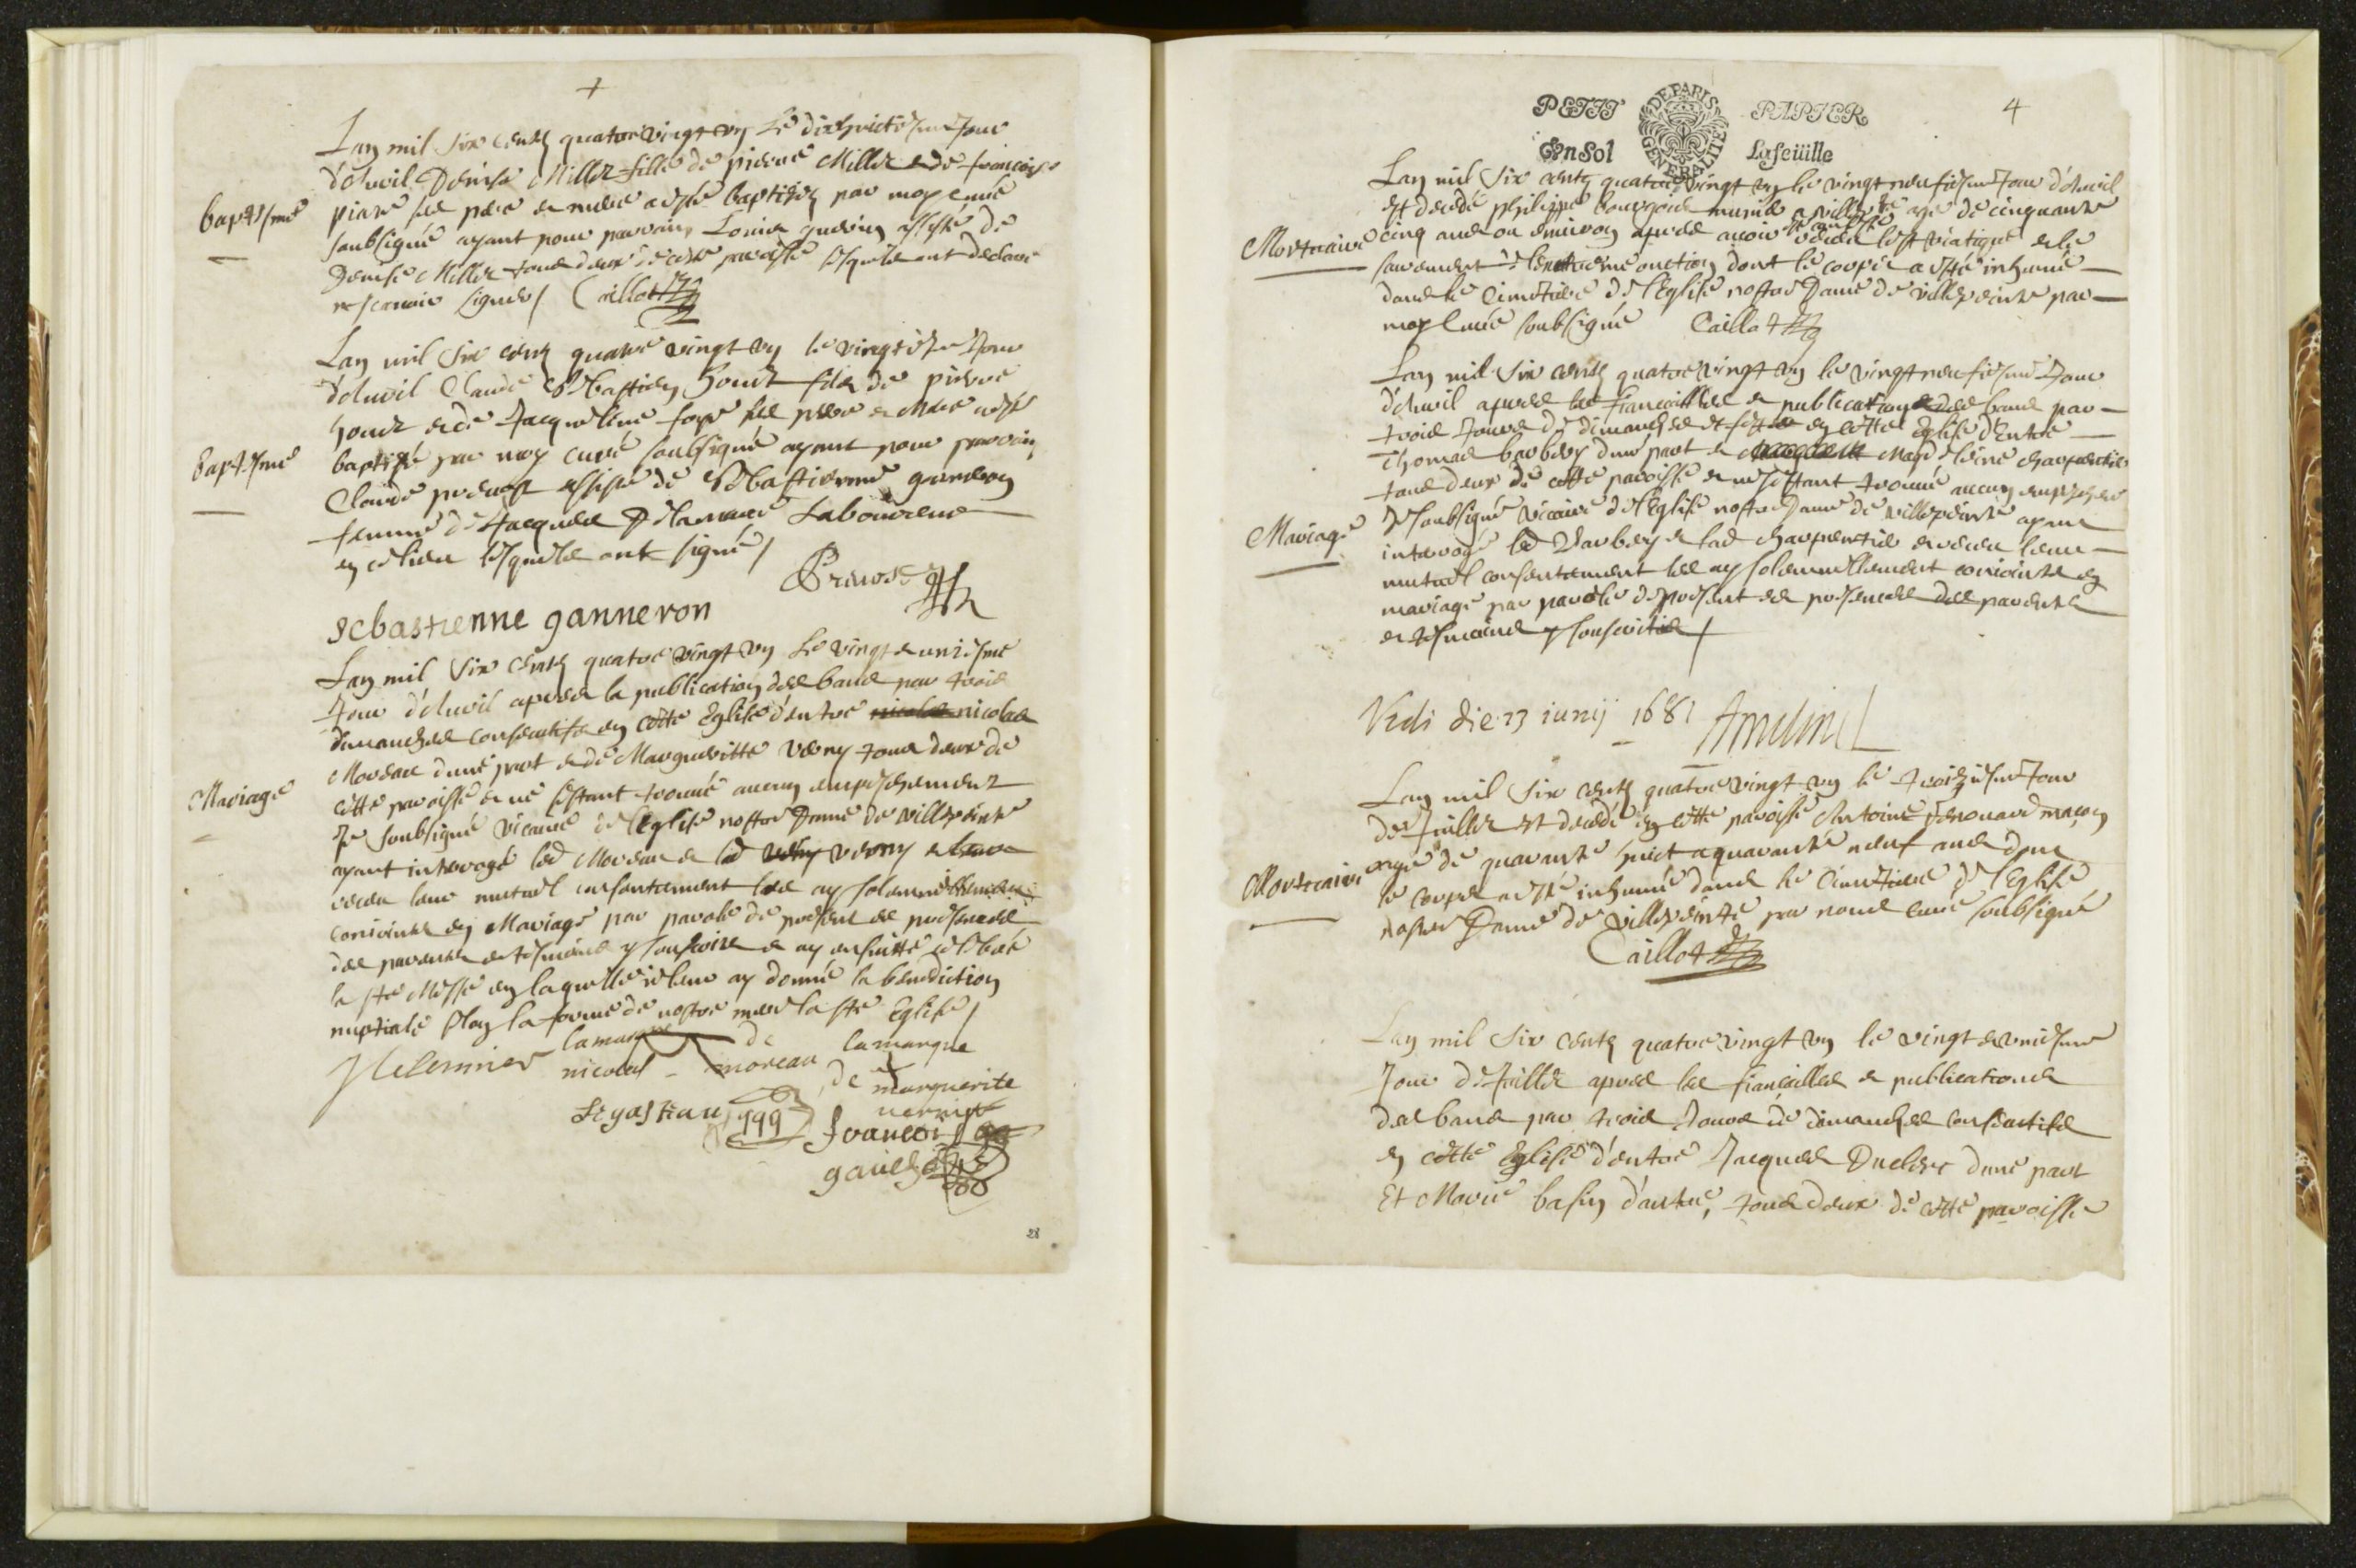 Lan mil six centz quatre vingt un le dixhuictiesme jour
d'Avril Denise Millet fille de pierre Millet et de francoise
piare ses pere et mere a esté baptisée par moy curé
baptesme
soubsigné ayant pour parain Louis guerin assisté de
Denise Millet tous deux de cette paroisse lesquels ont declaré
ne scavoir signer / Caillot
Lan mil six centz quatre vingt un le vingtiesme Jour
d'Avril Claude Sebastien houet fils de pierre
houet et de Jacqueline ses pere et mere a esté
baptesme
baptisé par moy curé soubsigné ayant pour parain
Claude prevost assisté de Sebastienne ganneron
femme de Jacques Delamare Laboureur
en ce lieu lesquels ont signé /
Prevost
sebastienne ganneron
Lan mil six centz quatre vingt un le vingt et uniesme
Jour d'Avril apres la publication des bans par trois
dimanches consecutifs en cette Eglise d'entre nicolas nicolas
Moreau d'une part et de Margueritte verny tous deux de
Mariage
cette paroisse et ne s'estant trouvé aucun empeschement
Je soubsigné vicaire de l'Eglise nostre Dame de villepeinte
ayant interrogé led Moreau et lad verny verny et
receu leur mutuel consentement les ay solemnellement
conioints en Mariage par parole de present es presences
des parents et tesmoins y souscrits et ay ensuitte celebré
la ste Messe en laquelle ie leur ay donné la benediction
nuptiale selon la forme de nostre mere la ste Eglise /
lamarque de
nicolas moreau
lamarque
de marguerite
francois
28
PETIT PAPIER
Un Sol La feüille
GENERALITE DE PARIS
4
Lan mil six centz quatre vingt un le vingt neufiesme Jour d'Avril
est decedé philippe agé de cinquante
Mortuaire
cinq ans ou environ apres avoir receu le st viatique et le
sacrement de l'extreme onction dont le corps a esté inhumé
dans le Cimetiere de l'Eglise nostre Dame de villepeinte par
moy Curé soubsigné Caillot
Lan mil six centz quatre vingt un le vingt neufiesme Jour
d'Avril apres les fiancailles et publication des bans par
trois Jours de dimanches et feste en cette Eglise d'Entre
Thomas barbery d'une part et Magdeleine charpentier
tous deux de cette paroisse et ne s'estant trouvé aucun empeschement
Mariage
Je soubsigné vicaire de l'Eglise nostre Dame de villepeinte ayant
interrogé led Barbery et lad charpentier et receu leur
mutuel consentement les ay solemnellement conioints en
mariage par parole de present es presences des parents
et tesmoins y souscrits /
Vidi die 23 iunij 1681
Lan mil six centz quatre vingt un le troisiesme Jour
de Juillet est decedé en cette paroisse Antoine Renouard maçon
Mortuaire
aagé de quarante huict a quarante neuf ans dont
le corps a esté inhumé dans le Cimetiere de l'Eglise
nostre Dame de villepeinte par nous curé soubsigné
Caillot
Lan mil six centz quatre vingt un le vingt et uniesme
Jour de Juillet apres les fiancailles et publications
des bans par trois Jours de dimanches consecutifs
en cette Eglise d'entre Jacques Duclerc d'une part
Et Marie basin d'autre, tous deux de cette paroisse